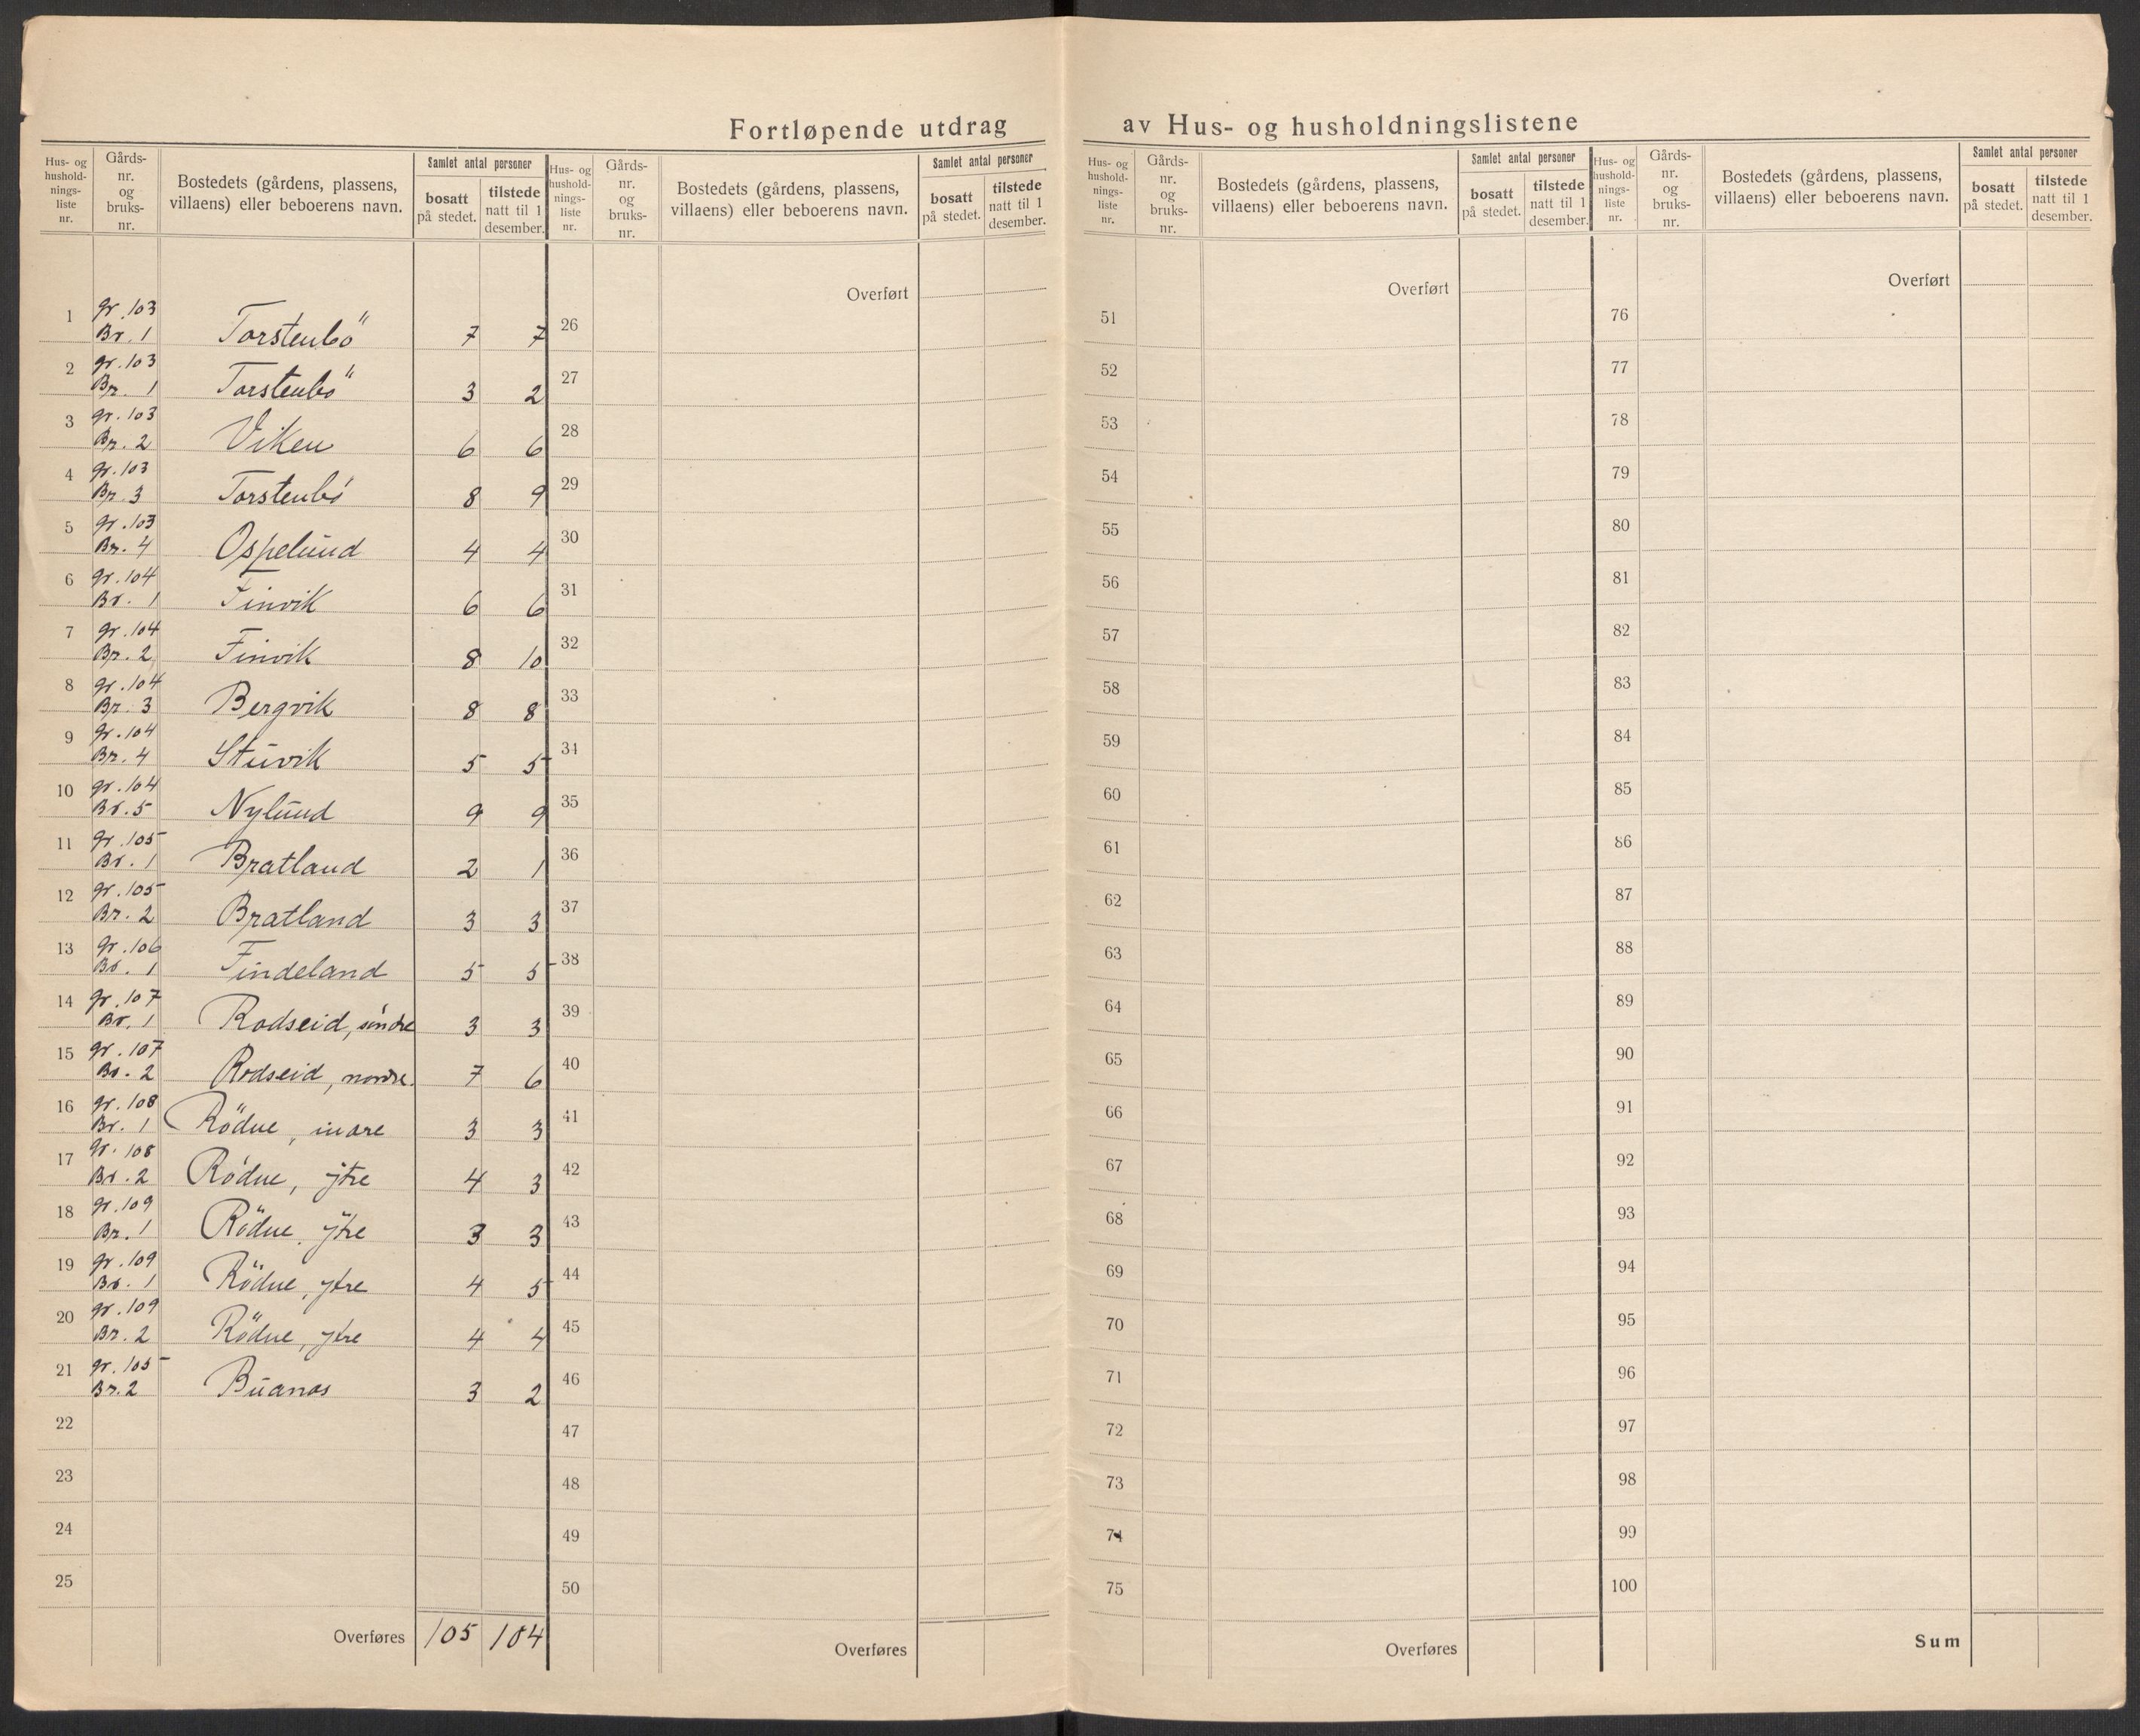 Fortløpende utdrag av Hus- og husholdningslistene
Hus- og hushold-nings-liste nr. Gårds-nr. og bruks-nr. Bostedets (gårdens, plassens, villaens) eller beboerens navn. Samlet antal personer bosatt på stedet. tilstede natt til 1 desember.
1 gr. 103 Br. 1 Torstenbö 7 7
2 gr. 103 Br. 1 Torstenbö 3 2
3 gr. 103 Br. 2 Viken 6 6
4 gr. 103 Br. 3 Torstenbö 8 9
5 gr. 103 Br. 4 Ospelund 4 4
6 gr. 104 Br. 1 Finvik 6 6
7 gr. 104 Br. 2 Finvik 8 10
8 gr. 104 Br. 3 Bergvik 8 8
9 gr. 104 Br. 4 Stuvik 5 5
10 gr. 104 Br. 5 Nylund 9 9
11 gr. 105 Br. 1 Bratland 2 1
12 gr. 105 Br. 2 Bratland 3 3
13 gr. 106 Br. 1 Findeland 5 5
14 gr. 107 Br. 1 Rodseid, söndre 3 3
15 gr. 107 Br. 2 Rodseid, nordre. 7 6
16 gr. 108 Br. 1 Rödne, indre 3 3
17 gr. 108 Br. 2 Rödne, ytre 4 3
18 gr. 109 Br. 1 Rödne, ytre 3 3
19 gr. 109 Br. 1 Rödne, ytre 4 5
20 gr. 109 Br. 2 Rödne, ytre 4 4
21 gr. 105 Br. 2 Buanas 3 2
22
23
24
25
Overføres 105 104
Hus- og hushold-nings-liste nr. Gårds-nr. og bruks-nr. Bostedets (gårdens, plassens, villaens) eller beboerens navn. Samlet antal personer bosatt på stedet. tilstede natt til 1 desember.
Overført
26
27
28
29
30
31
32
33
34
35
36
37
38
39
40
41
42
43
44
45
46
47
48
49
50
Overføres
Hus- og hushold-nings-liste nr. Gårds-nr. og bruks-nr. Bostedets (gårdens, plassens, villaens) eller beboerens navn. Samlet antal personer bosatt på stedet. tilstede natt til 1 desember.
Overført
51
52
53
54
55
56
57
58
59
60
61
62
63
64
65
66
67
68
69
70
71
72
73
74
75
Overføres
Hus- og hushold-nings-liste nr. Gårds-nr. og bruks-nr. Bostedets (gårdens, plassens, villaens) eller beboerens navn. Samlet antal personer bosatt på stedet. tilstede natt til 1 desember.
Overført
76
77
78
79
80
81
82
83
84
85
86
87
88
89
90
91
92
93
94
95
96
97
98
99
100
Sum